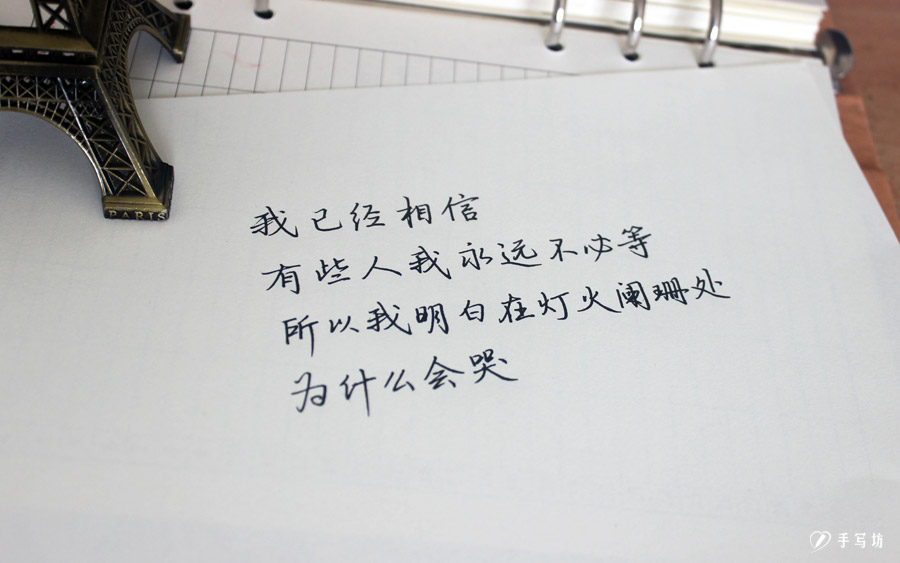 PARIS
我已经相信
有些人我永远不必等
所以我明白在灯火阑珊处
为什么会哭
手写坊